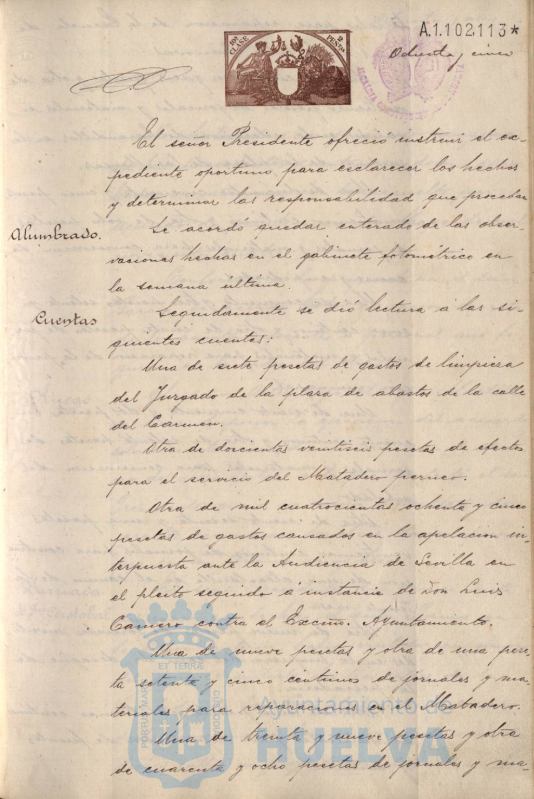 A.1.102.113*
10ª CLASE
2 PESETAS
Ochenta y cinco
El señor Presidente ofreció instruir el ex-
pediente oportuno para esclarecer los hechos
y determinar las responsabilidad que procedan
Alumbrado.
Se acordó quedar enterado de las obser-
vaciones hechas en el gabinete fotométrico en
la semana última.
Cuentas
Seguidamente se dió lectura á las si-
guientes cuentas:
Una de siete pesetas de gastos de limpieza
del Juzgado de la plaza de abastos de la calle
del Carmen.
Otra de doscientas veintiseis pesetas de efectos
para el servicio del Matadero
Otra de mil cuatrocientas ochenta y cinco
pesetas de gastos causados en la apelacion in-
terpuesta ante la Audiencia de Sevilla en
el pleito seguido á instancia de Don Luis
Camero contra el Excmo. Ayuntamiento.
Una de nueve pesetas y otra de una pese-
ta setenta y cinco centimos de jornales y ma-
teriales para reparaciones en el Matadero.
Una de treinta y nueve pesetas y otra
de cuarenta y ocho pesetas de jornales y ma-
PORTUS MARIS
ET TERRAE
CUSTODIA
Ayuntamiento de
HUELVA